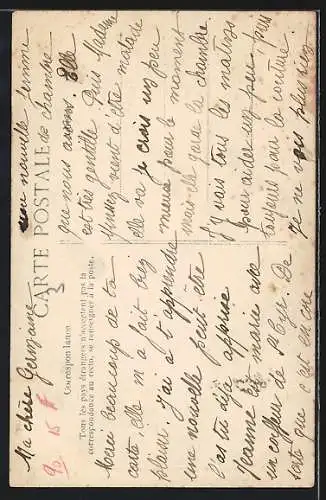 Ma chère Germaine
CARTE POSTALE
Correspondance
Tous les pays étrangers n'acceptent pas la
correspondance au recto, se renseigner à la poste.
Merci beaucoup de ta
carte, elle m'a fait très
plaisir. J'ai à t'apprendre
une nouvelle peut être
l'as tu déjà apprise
Jeanne est mariée avec
un coiffeur de St Cyr. De
sorte que c'est encore
une nouvelle femme
de chambre
que nous avons. Elle
est très gentille. Puis Madame
vient d'être malade
elle va je crois un peu
mieux pour le moment
mais elle garde la chambre
J'y vais tous les matins
pour aider un peu, puis
toujours pour la couture.
Je ne vais plus chez